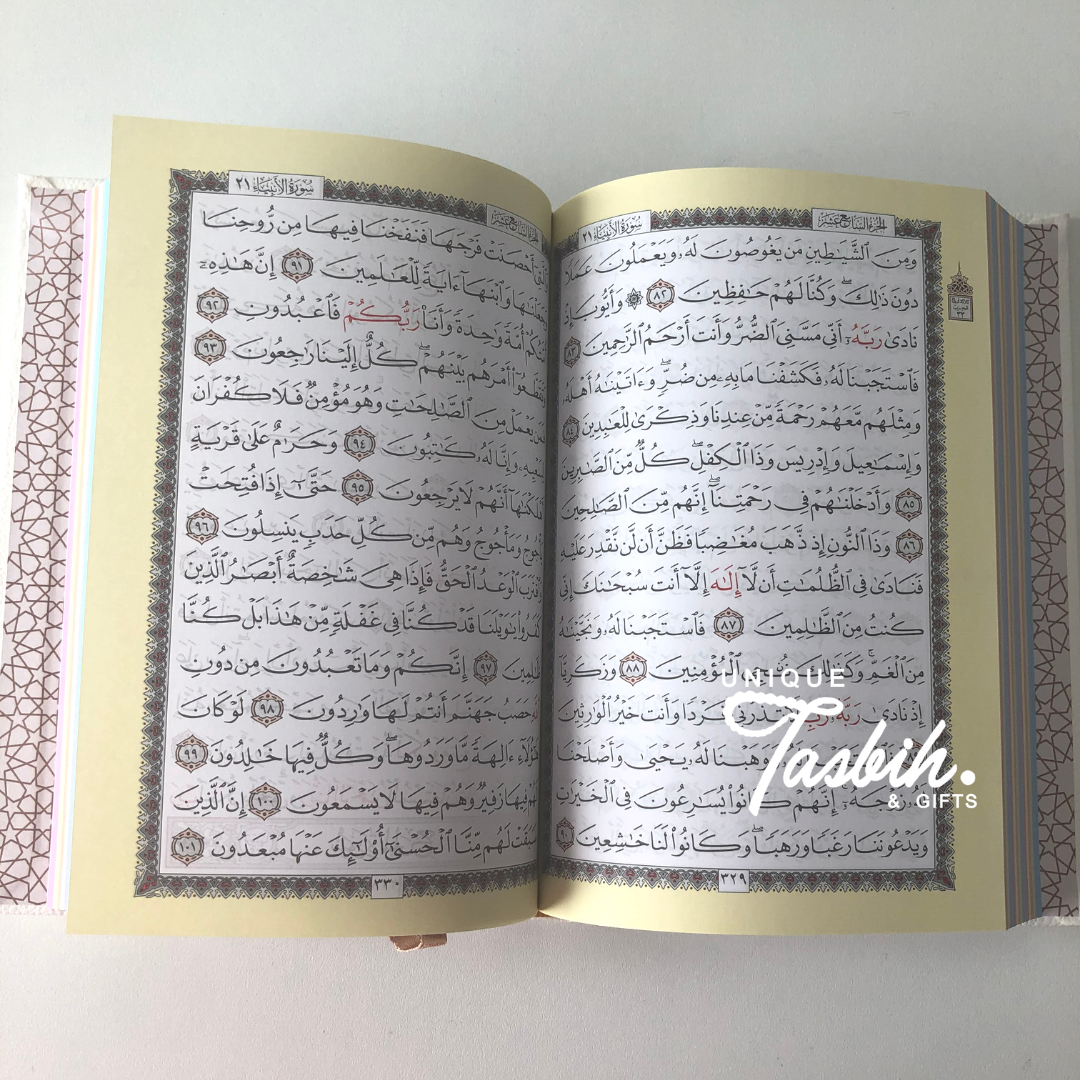 سُورَةُ الأَنبِيَاءِ ٢١
الجُزْءُ السَّابِعَ عَشَرَ
وَمِنَ ٱلشَّيَٰطِينِ مَن يَغُوصُونَ لَهُۥ وَيَعْمَلُونَ عَمَلًا
دُونَ ذَٰلِكَ ۖ وَكُنَّا لَهُمْ حَٰفِظِينَ ٨٢ ۞ وَأَيُّوبَ إِذْ
نَادَىٰ رَبَّهُۥٓ أَنِّى مَسَّنِىَ ٱلضُّرُّ وَأَنتَ أَرْحَمُ ٱلرَّٰحِمِينَ ٨٣
فَٱسْتَجَبْنَا لَهُۥ فَكَشَفْنَا مَا بِهِۦ مِن ضُرٍّ ۖ وَءَاتَيْنَٰهُ أَهْلَهُۥ
وَمِثْلَهُم مَّعَهُمْ رَحْمَةً مِّنْ عِندِنَا وَذِكْرَىٰ لِلْعَٰبِدِينَ ٨٤
وَإِسْمَٰعِيلَ وَإِدْرِيسَ وَذَا ٱلْكِفْلِ ۖ كُلٌّ مِّنَ ٱلصَّٰبِرِينَ
٨٥ وَأَدْخَلْنَٰهُمْ فِى رَحْمَتِنَآ ۖ إِنَّهُم مِّنَ ٱلصَّٰلِحِينَ
٨٦ وَذَا ٱلنُّونِ إِذ ذَّهَبَ مُغَٰضِبًا فَظَنَّ أَن لَّن نَّقْدِرَ عَلَيْهِ
فَنَادَىٰ فِى ٱلظُّلُمَٰتِ أَن لَّآ إِلَٰهَ إِلَّآ أَنتَ سُبْحَٰنَكَ إِنِّى
كُنتُ مِنَ ٱلظَّٰلِمِينَ ٨٧ فَٱسْتَجَبْنَا لَهُۥ وَنَجَّيْنَٰهُ
مِنَ ٱلْغَمِّ ۚ وَكَذَٰلِكَ ٱلْمُؤْمِنِينَ ٨٨ وَزَكَرِيَّآ
إِذْ نَادَىٰ رَبَّهُۥ رَبِّ فَرْدًا وَأَنتَ خَيْرُ ٱلْوَٰرِثِينَ
وَوَهَبْنَا لَهُۥ يَحْيَىٰ وَأَصْلَحْنَا
إِنَّهُمْ كَانُوا۟ يُسَٰرِعُونَ فِى ٱلْخَيْرَٰتِ
وَيَدْعُونَنَا رَغَبًا وَرَهَبًا ۖ وَكَانُوا۟ لَنَا خَٰشِعِينَ ٩٠
٣٢٩
سُورَةُ الأَنبِيَاءِ ٢١
الجُزْءُ السَّابِعَ عَشَرَ
وَٱلَّتِىٓ أَحْصَنَتْ فَرْجَهَا فَنَفَخْنَا فِيهَا مِن رُّوحِنَا
وَجَعَلْنَٰهَا وَٱبْنَهَآ ءَايَةً لِّلْعَٰلَمِينَ ٩١ إِنَّ هَٰذِهِۦٓ
أُمَّتُكُمْ أُمَّةً وَٰحِدَةً وَأَنَا۠ رَبُّكُمْ فَٱعْبُدُونِ ٩٢
وَتَقَطَّعُوٓا۟ أَمْرَهُم بَيْنَهُمْ ۖ كُلٌّ إِلَيْنَا رَٰجِعُونَ ٩٣
فَمَن يَعْمَلْ مِنَ ٱلصَّٰلِحَٰتِ وَهُوَ مُؤْمِنٌ فَلَا كُفْرَانَ
لِسَعْيِهِۦ وَإِنَّا لَهُۥ كَٰتِبُونَ ٩٤ وَحَرَٰمٌ عَلَىٰ قَرْيَةٍ
أَهْلَكْنَٰهَآ أَنَّهُمْ لَا يَرْجِعُونَ ٩٥ حَتَّىٰٓ إِذَا فُتِحَتْ
يَأْجُوجُ وَمَأْجُوجُ وَهُم مِّن كُلِّ حَدَبٍ يَنسِلُونَ ٩٦
وَٱقْتَرَبَ ٱلْوَعْدُ ٱلْحَقُّ فَإِذَا هِىَ شَٰخِصَةٌ أَبْصَٰرُ ٱلَّذِينَ
كَفَرُوا۟ يَٰوَيْلَنَا قَدْ كُنَّا فِى غَفْلَةٍ مِّنْ هَٰذَا بَلْ كُنَّا
ظَٰلِمِينَ ٩٧ إِنَّكُمْ وَمَا تَعْبُدُونَ مِن دُونِ
ٱللَّهِ حَصَبُ جَهَنَّمَ أَنتُمْ لَهَا وَٰرِدُونَ ٩٨ لَوْ كَانَ
هَٰٓؤُلَآءِ ءَالِهَةً مَّا وَرَدُوهَا ۖ وَكُلٌّ فِيهَا خَٰلِدُونَ ٩٩
لَهُمْ فِيهَا زَفِيرٌ وَهُمْ فِيهَا لَا يَسْمَعُونَ ١٠٠ إِنَّ ٱلَّذِينَ
سَبَقَتْ لَهُم مِّنَّا ٱلْحُسْنَىٰٓ أُو۟لَٰٓئِكَ عَنْهَا مُبْعَدُونَ ١٠١
٣٣٠
UNIQUE
Tasbih.
& GIFTS